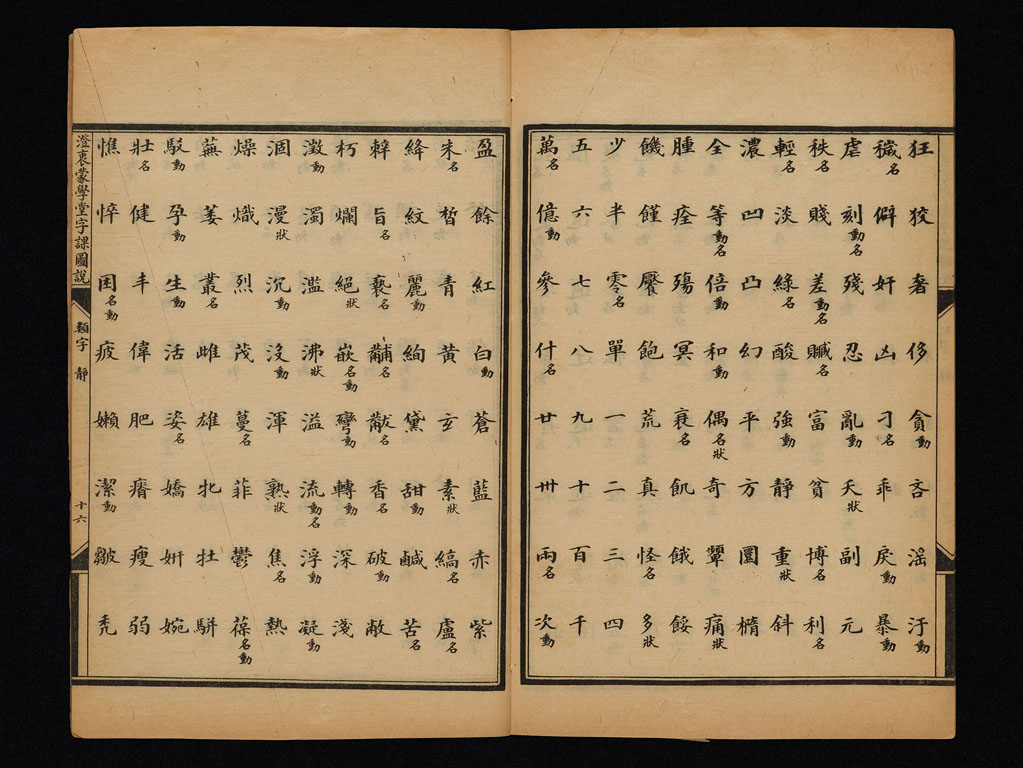 狂 狡 奢 侈 貪動 吝 滛 汙動
穢名 僻 奸 凶 刁名 乖 戾動 暴動
虐 刻動名 殘 忍 亂動 夭狀 副 元
秩名 賤 差動名 贓名 富 貧 博名 利名
輕名 淡 綠名 酸 強動 靜 重狀 斜
濃 凹 凸 幻 平 方 圓 橢
全 等動名 倍動 和動 偶名狀 奇 痛狀
腫 痊 殤 冥 衰名 飢 餓 餒
饑 饉 饜 飽 荒 真 怪名 多狀
少 半 零名 單 一 二 三 四
五 六 七 八 九 十 百 千
萬名 億動 參 什名 廿 卅 兩名 次動
盈 餘 紅 白動 蒼 藍 赤 紫
朱名 皙 青 黃 玄 素狀 縞名 盧名
絳 紋 麗動 絢 黛 甜動 鹹 苦名
辣 旨名 褻名 黼名 黻名 香名 破動 敝
朽 爛 絕狀 嵌名動 彎動 轉動 深 淺
澂動 濁 濫 沸狀 溢 流動名 浮動 凝動
涸 漫狀 沉動 沒動 渾 熟狀 焦名 熱
燥 熾 烈 茂 蔓名 菲 鬱 葆名動
蕪 萎 叢名 雌 雄 牝 牡 駢
駁動 孕動 生動 活 姿名 嬌 妍 婉
壯名 健 丰 偉 肥 瘠 瘦 弱
憔 悴 困名動 疲 嬾 潔動 皺 禿
澄衷蒙學堂字課圖說 類字 靜 十六